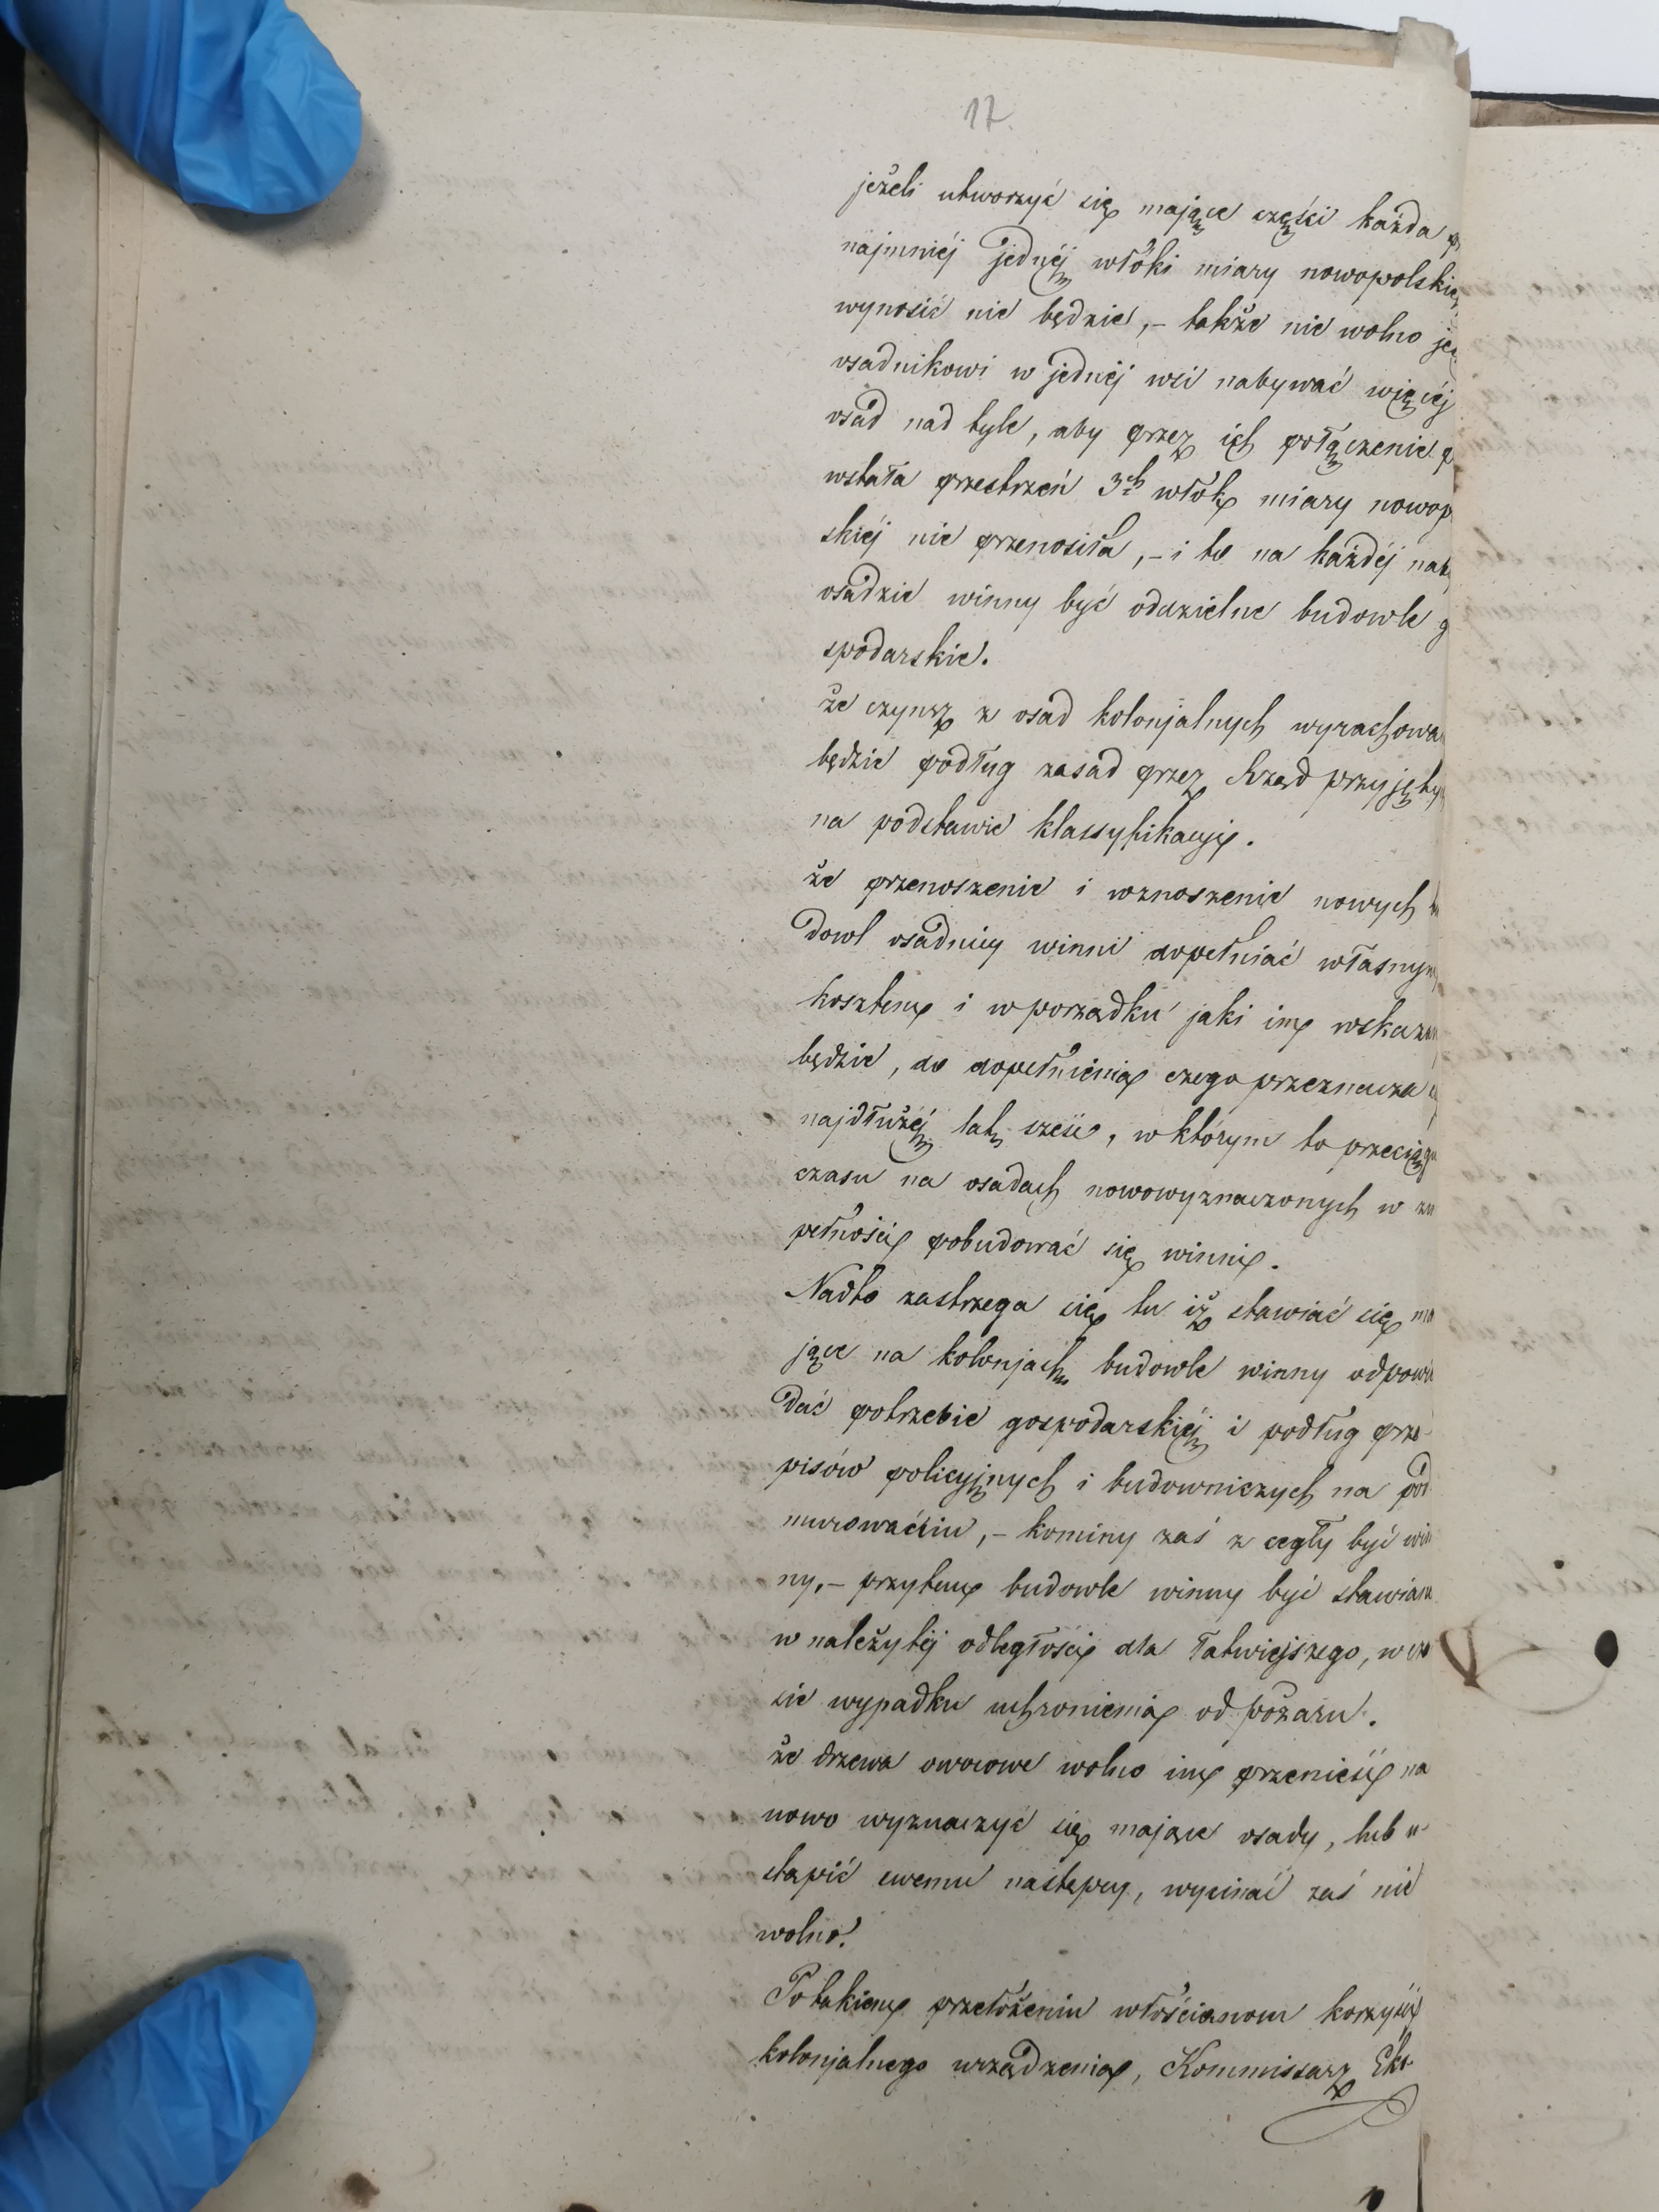 17.
jeżeli utworzyć się mające części każda
najmniéj jednéj włóki miary nowopolskié
wynosić nie będzie, – także nie wolno je
osadnikowi w jednéj wsi nabywać więcéj
osad nad tyle, aby przez ich połączenie p
wstała przestrzeń 3ch włók miary nowop
skiéj nie przenosiła, – i to na każdéj nab
osadzie winny być oddzielne budowle g
spodarskie.
że czynsz z osad kolonjalnych wyrachowa
będzie podług zasad przez Rząd przyjęty
na podstawie klassyfikacyi.
że przenoszenie i wznoszenie nowych bu
dowl osadnicy winni dopełniać własnym
kosztem i w porządku jaki im wskazan
będzie, do dopełnienia czego przeznacza
najdłużéj lat sześć, w którym to przeciągu
czasu na osadach nowowyznaczonych w zu
pełności pobudować się winni.
Nadto zastrzega się tu iż stawiać się ma
jące na kolonjach budowle winny odpowia
dać potrzebie gospodarskiéj i podług prze-
pisów policyjnych i budowniczych na pod
murowaniu, – kominy zaś z cegły być win
ny, – przytem budowle winny być stawiane
w należytéj odległości dla łatwiejszego, w cza
sie wypadku uchronienia od pożaru.
że drzewa owocowe wolno im przenieść na
nowo wyznaczyć się mające osady, lub u-
stąpić swemu następcy, wycinać zaś nie
wolno.
Po takiem przełożeniu włościanom korzyści
kolonjalnego urządzenia, Kommissarz Eko-